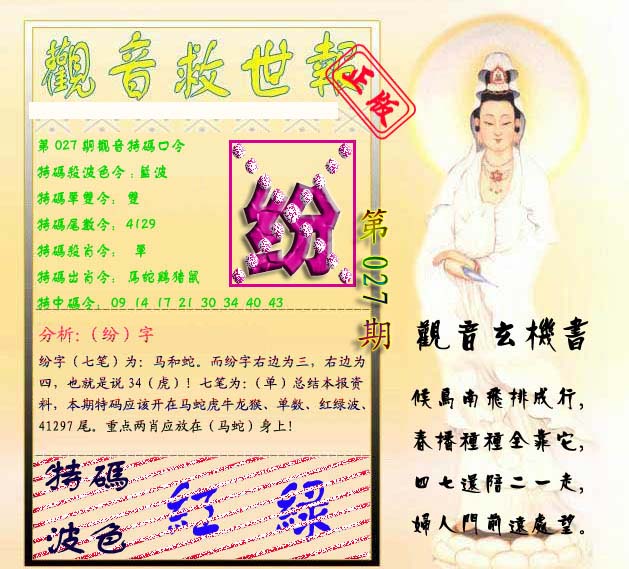 觀音救世報
正版
第027期觀音特碼口令
特碼殺波色令：藍波
特碼單雙令：雙
特碼尾數令：4129
特碼殺肖令：單
特碼出肖令：馬蛇鷄猪鼠
特中碼令：09 14 17 21 30 34 40 43
纷
第027期
分析:（纷）字
纷字（七笔）为：马和蛇。而纷字右边为三，右边为
四，也就是说34（虎）！七笔为:（单）总结本报资
料，本期特码应该开在马蛇虎牛龙猴、单数、红绿波、
41297尾。重点两肖应放在（马蛇）身上！
特碼
波色
紅 綠
觀音玄機書
候鳥南飛排成行，
春播種種全靠它，
四七還陪二一走，
婦人門前遠處望。